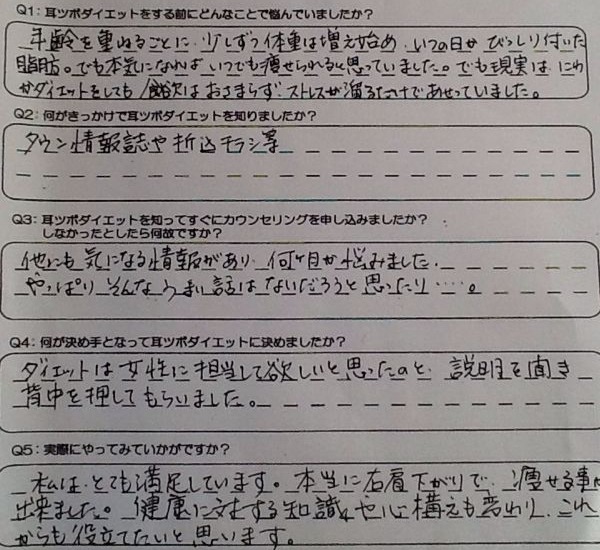 Q1：耳ツボダイエットをする前にどんなことで悩んでいましたか？
年齢を重ねるごとに、少しずつ体重は増え始め、いつの日かびっしり付いた
脂肪。でも本気になればいつでも痩せられると思っていました。でも現実は、にわ
かダイエットをしても食欲はおさまらず、ストレスが溜るだけであせっていました。
Q2：何がきっかけで耳ツボダイエットを知りましたか？
タウン情報誌や折込チラシ等
Q3：耳ツボダイエットを知ってすぐにカウンセリングを申し込みましたか？
しなかったとしたら何故ですか？
他にも気になる情報があり、何ヶ月か悩みました。
やっぱりそんなうまい話はないだろうと思ったり・・・・。
Q4：何が決め手となって耳ツボダイエットに決めましたか？
ダイエットは女性に担当して欲しいと思ったのと、説明を聞き
背中を押してもらいました。
Q5：実際にやってみていかがですか？
私は、とても満足しています。本当に右肩下がりで、痩せる事が
出来ました。健康に対する知識や心構えも変わり、これ
からも役立てたいと思います。